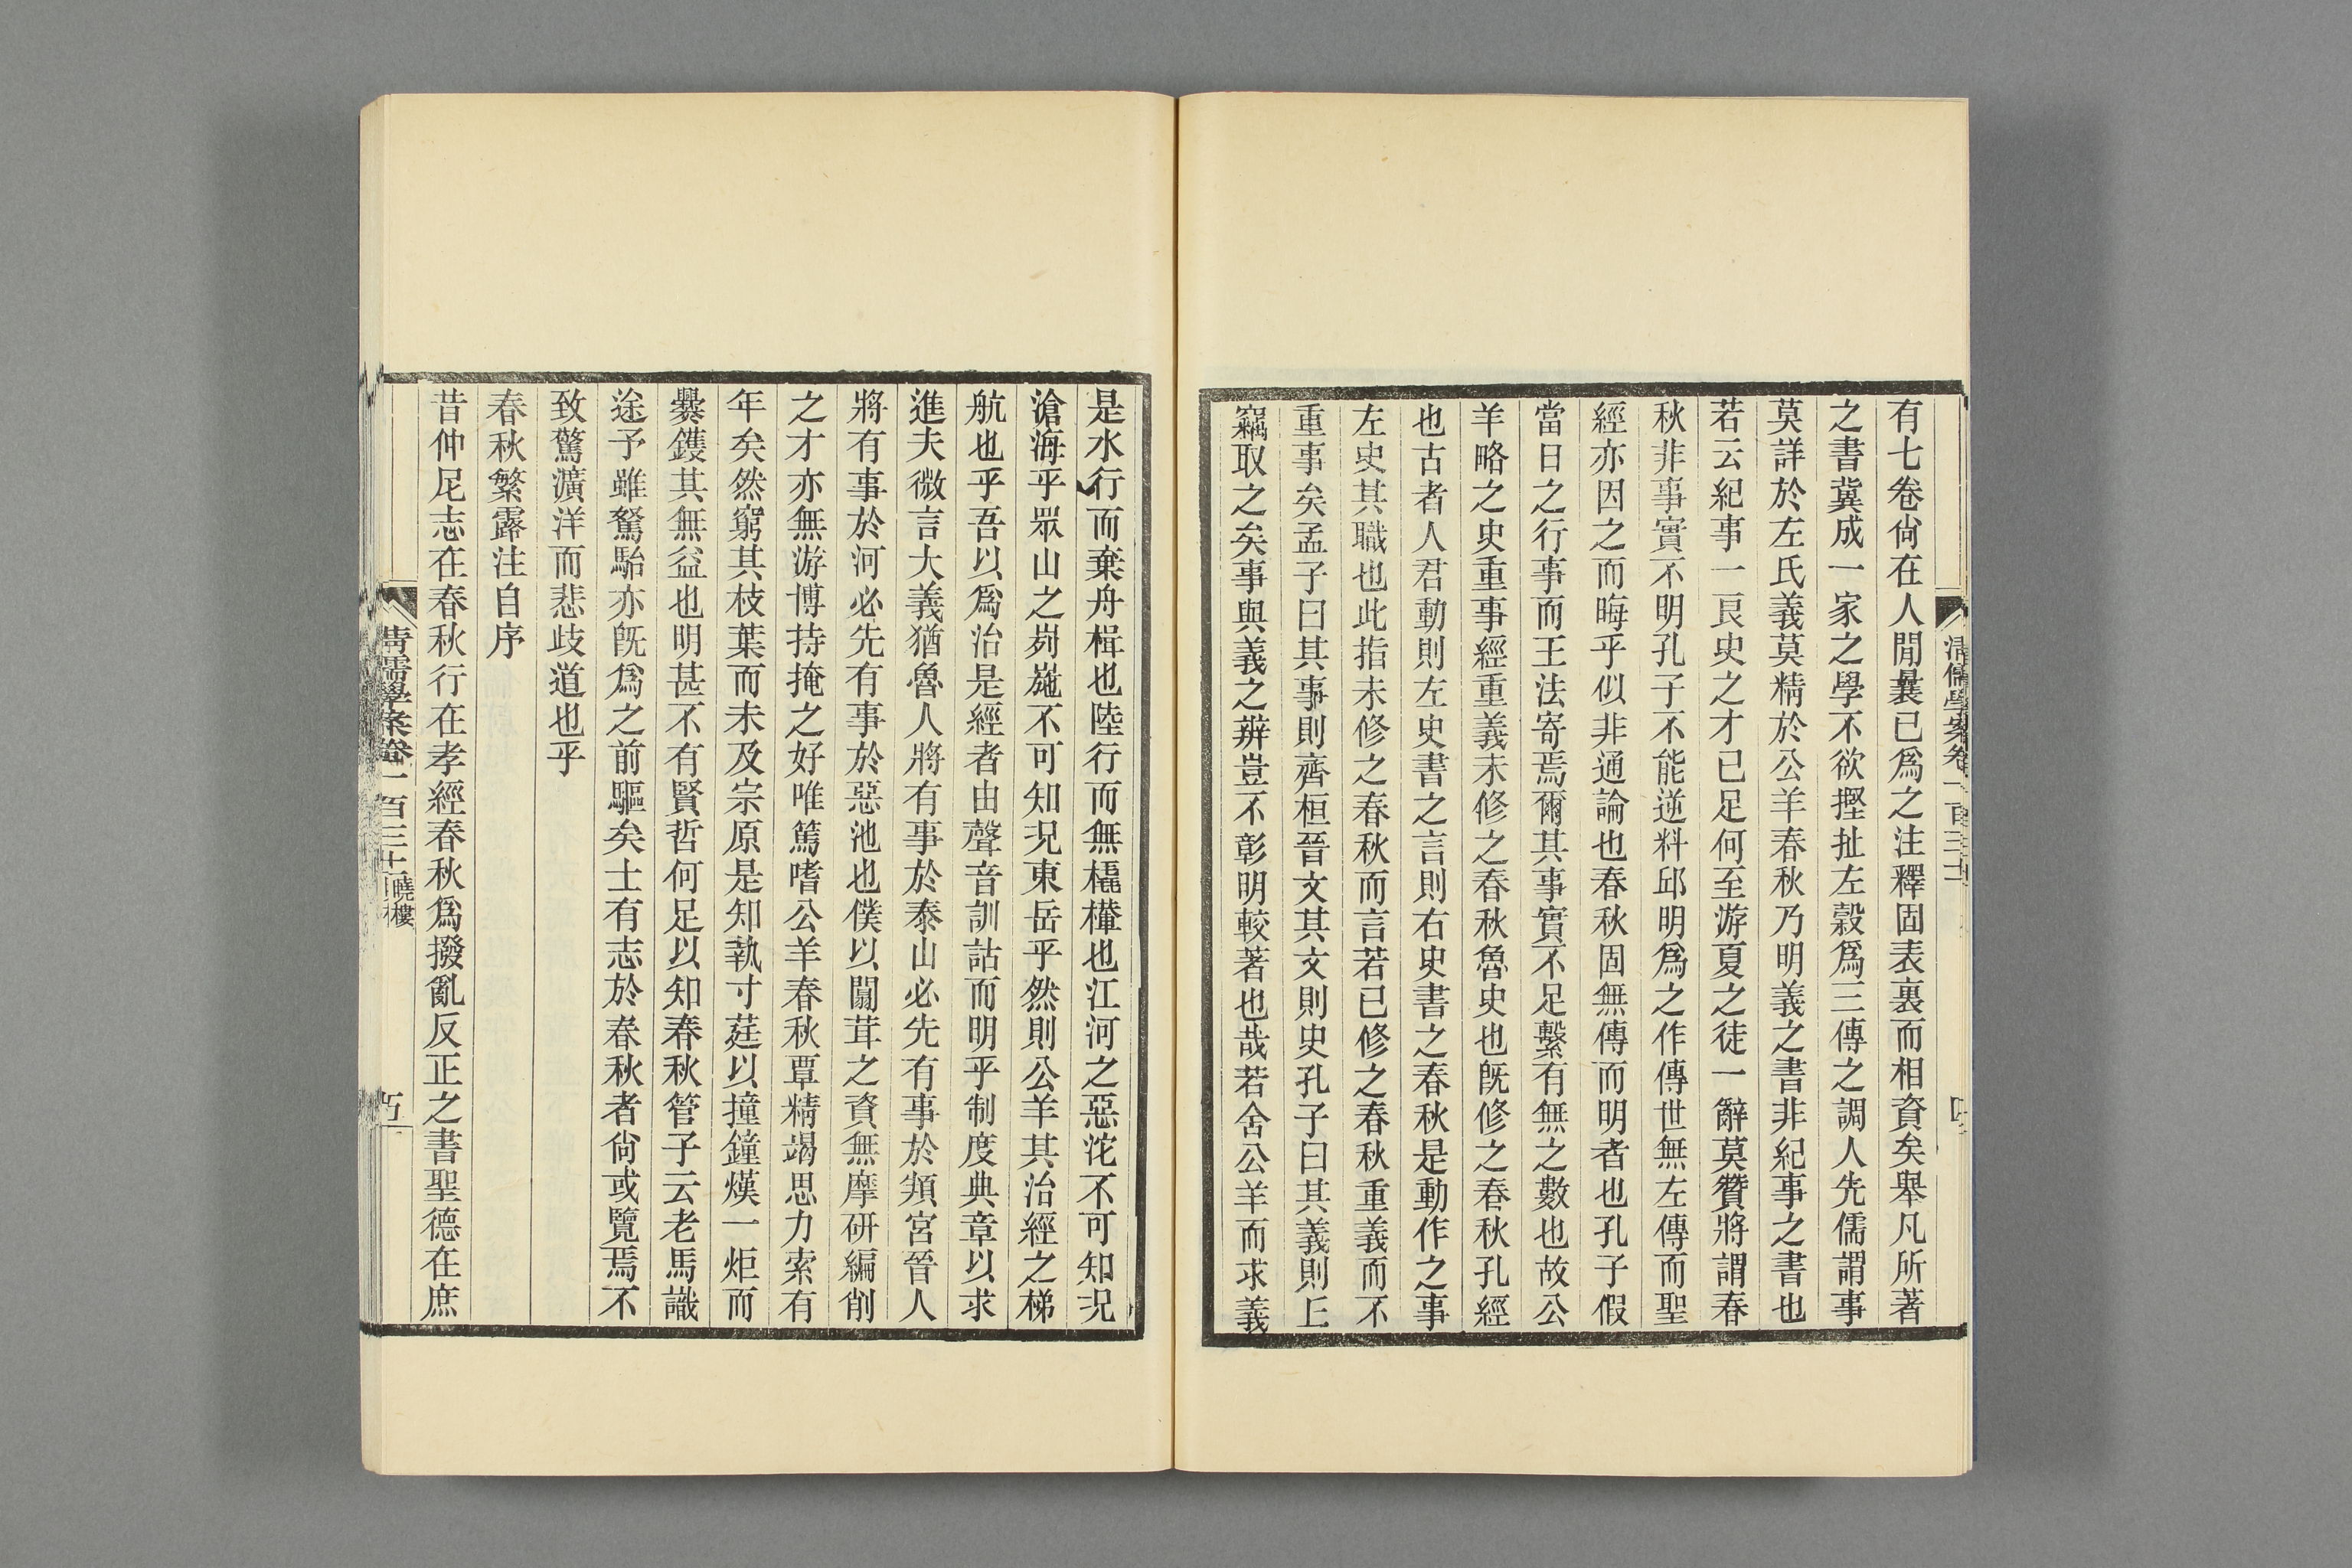 有七卷尙在人閒曩已爲之注釋固表裏而相資矣舉凡所著
之書冀成一家之學不欲摼扯左穀爲三傳之調人先儒謂事
莫詳於左氏義莫精於公羊春秋乃明義之書非紀事之書也
若云紀事一良史之才已足何至游夏之徒一辭莫贊將謂春
秋非事實不明孔子不能逆料邱明爲之作傳世無左傳而聖
經亦因之而晦乎似非通論也春秋固無傳而明者也孔子假
當日之行事而王法寄焉爾其事實不足繫有無之數也故公
羊略之史重事經重義未修之春秋魯史也旣修之春秋孔經
也古者人君動則左史書之言則右史書之春秋是動作之事
左史其職也此指未修之春秋而言若已修之春秋重義而不
重事矣孟子曰其事則齊桓晉文其文則史孔子曰其義則丘
竊取之矣事與義之辨豈不彰明較著也哉若舍公羊而求義
是水行而棄舟楫也陸行而無橇欙也江河之惡沱不可知況
滄海乎眾山之峛崺不可知況東岳乎然則公羊其治經之梯
航也乎吾以爲治是經者由聲音訓詁而明乎制度典章以求
進夫微言大義猶魯人將有事於泰山必先有事於頖宮晉人
將有事於河必先有事於惡池也僕以闒茸之資無摩硏編削
之才亦無游博持掩之好唯篤嗜公羊春秋覃精竭思力索有
年矣然窮其枝葉而未及宗原是知執寸莛以撞鐘熯一炬而
爨鑊其無益也明甚不有賢哲何足以知春秋管子云老馬識
途予雖駑駘亦旣爲之前驅矣士有志於春秋者尙或覽焉不
致驚瀇洋而悲歧道也乎
春秋繁露注自序
昔仲尼志在春秋行在孝經春秋爲撥亂反正之書聖德在庶
清儒學案卷一百三十一曉樓
五